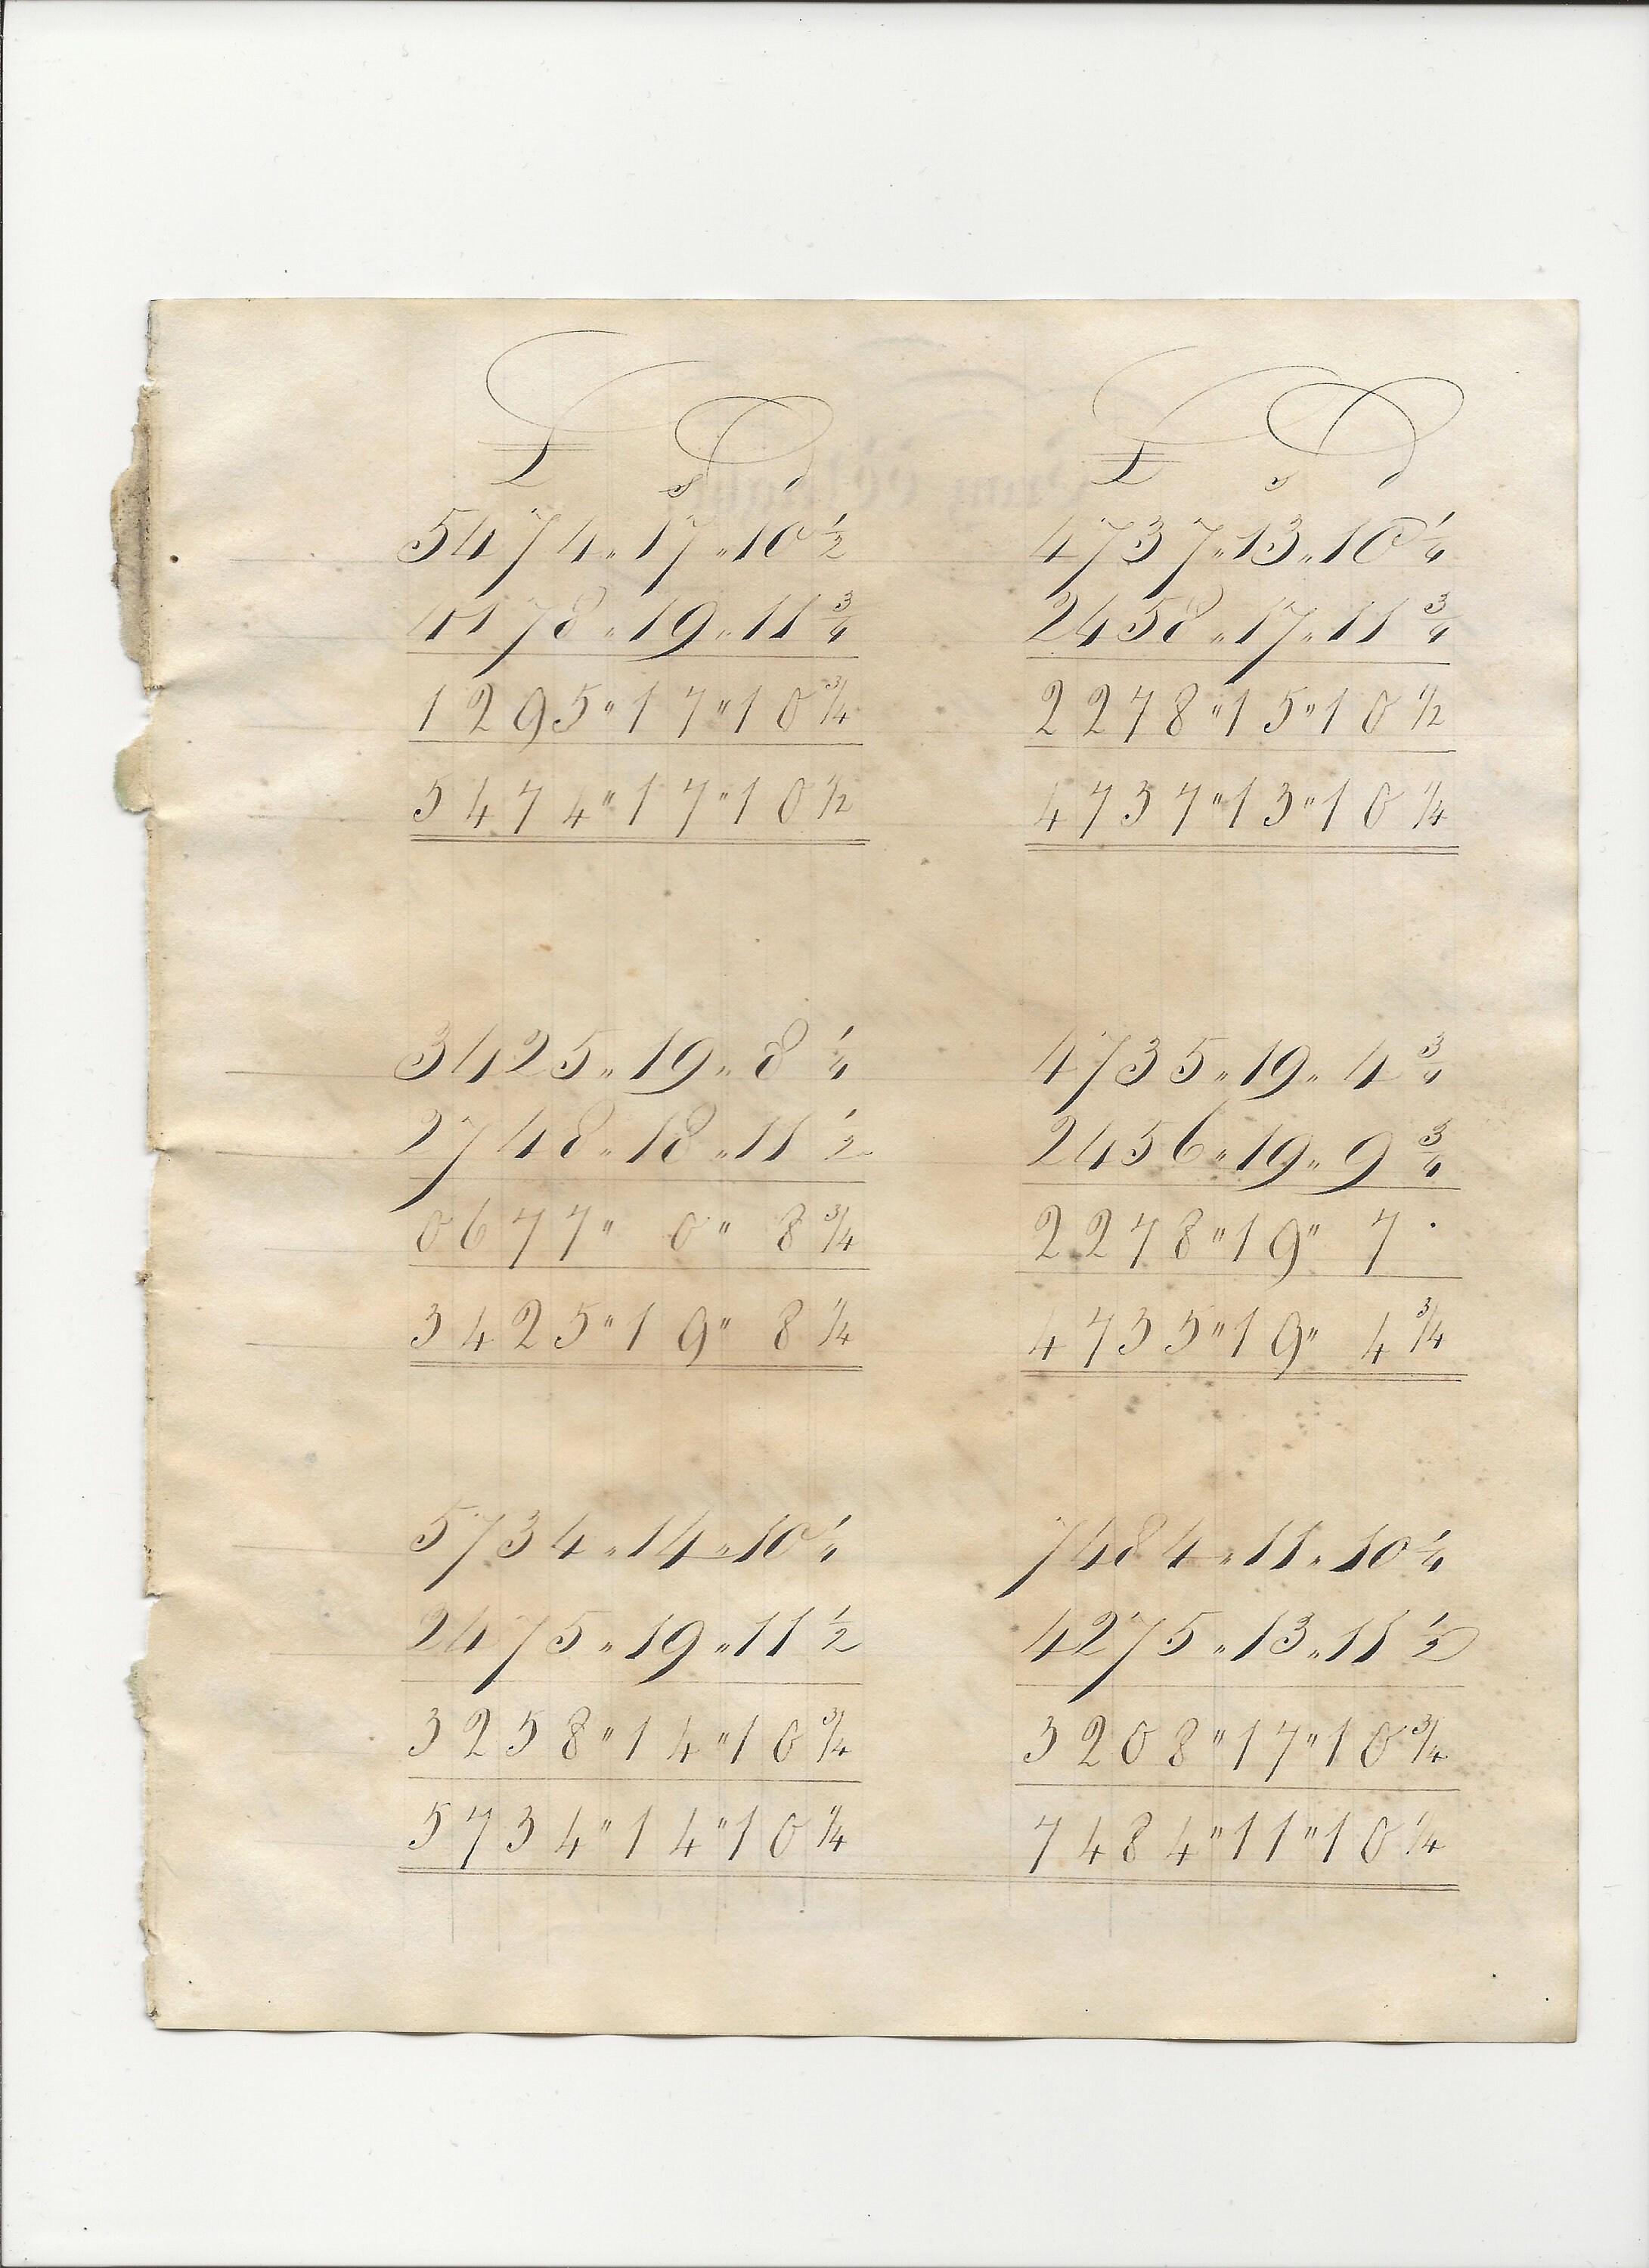 £ s d £ s d
5474 〃 17 〃 10 ½ 4737 〃 13 〃 10 ¼
4178 〃 19 〃 11 ¾ 2458 〃 17 〃 11 ¾
1295 〃 17 〃 10 ¾ 2278 〃 15 〃 10 ½
5474 〃 17 〃 10 ½ 4737 〃 13 〃 10 ¼
3425 〃 19 〃 8 ¼ 4735 〃 19 〃 4 ¾
2748 〃 18 〃 11 ½ 2456 〃 19 〃 9 ¾
0677 〃 0 〃 8 ¾ 2278 〃 19 〃 7 ·
3425 〃 19 〃 8 ¼ 4735 〃 19 〃 4 ¾
5734 〃 14 〃 10 ¼ 7484 〃 11 〃 10 ¼
2475 〃 19 〃 11 ½ 4275 〃 13 〃 11 ½
3258 〃 14 〃 10 ¾ 3208 〃 17 〃 10 ¾
5734 〃 14 〃 10 ¼ 7484 〃 11 〃 10 ¼